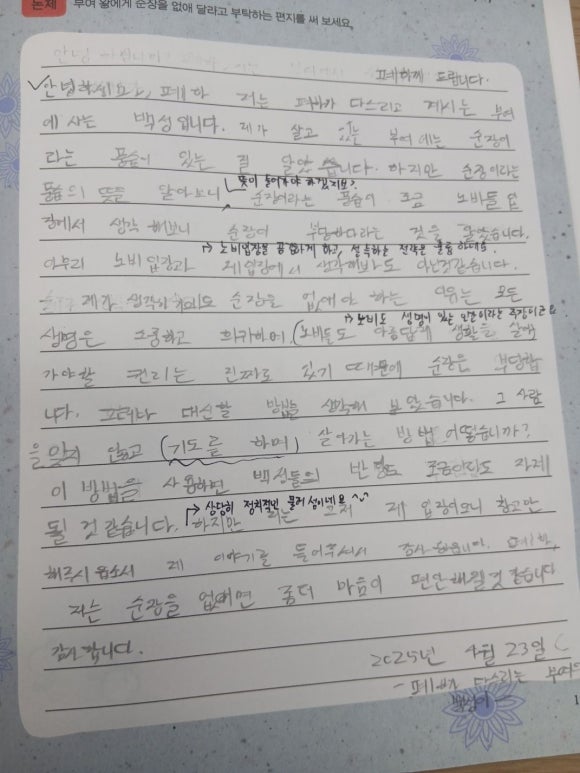 논제 부여 왕에게 순장을 없애 달라고 부탁하는 편지를 써 보세요.
폐하께 드립니다.
안녕하세요, 폐하 저는 폐하가 다스리고 계시는 부여
에 사는 백성입니다. 제가 살고 있는 부여에는 순장이
라는 풍습이 있는 걸 알았습니다. 하지만 순장이라는
뜻이 들어가야 하겠지요?
풍습의 뜻을 알아보니 순장이라는 풍습이 조금 노비들 입
장에서 생각해보니 순장이 부당하다라는 것을 알았습니다.
→ 노비입장을 공감하게 하고, 설득하는 전략은 훌륭하네요
아무리 노비 입장과 제입장에서 생각해봐도 아닌것같습니다.
제가 생각하기에도 순장을 없애야 하는 이유는 모든
→ 노비도 생명이 있는 인간이라는 주장이군요
생명은 소중하고 희귀하며, (노비들도 아름답게 생활을 살아
가야할 권리는 진짜로 있기 때문에 순장은 부당합
니다. 그러니 대신할 방법을 생각해 보았습니다. 그 사람
을 잊지 않고 (기도를 하며) 살아가는 방법 어떻습니까?
이 방법을 사용하면 백성들의 반발도 조금이라도 자제
될 것 같습니다. 하지만 이는 그저 제 입장이오니 참고만
→ 상당히 정치적인 물러섬이네요 ^^
해주시옵소서 제 이야기를 들어주셔서 감사합니다. 폐하,
저는 순장을 없애면 좀더 마음이 편안해질것 같습니다
감사합니다.
2025년 4월 23일
- 폐하가 다스리는 부여의
백성이